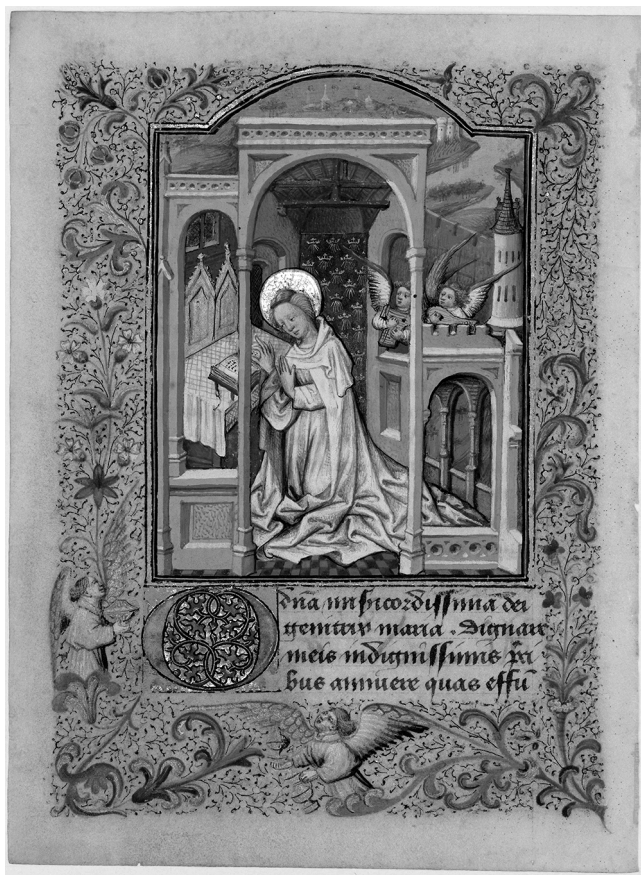 O dn̄a misericordissima dei
genitrix maria. Dignare
meis indignissimis p̄ci
bus annuere quas effū